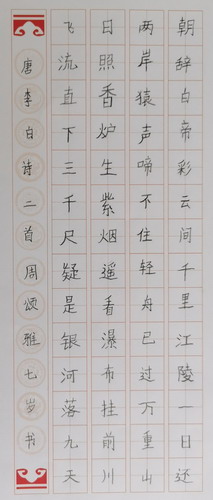 朝辞白帝彩云间千里江陵一日还
两岸猿声啼不住轻舟已过万重山
日照香炉生紫烟遥看瀑布挂前川
飞流直下三千尺疑是银河落九天
唐李白诗二首周颂雅七岁书